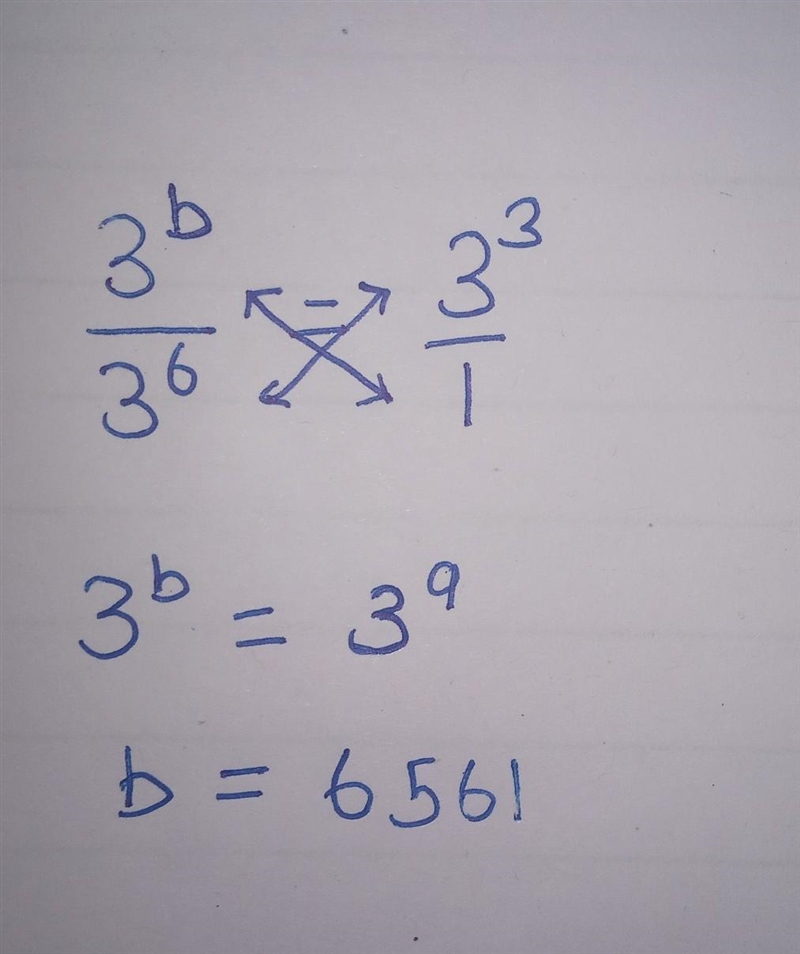 3^b/3^6 = 3^3/1
3^b = 3^9
b = 6561